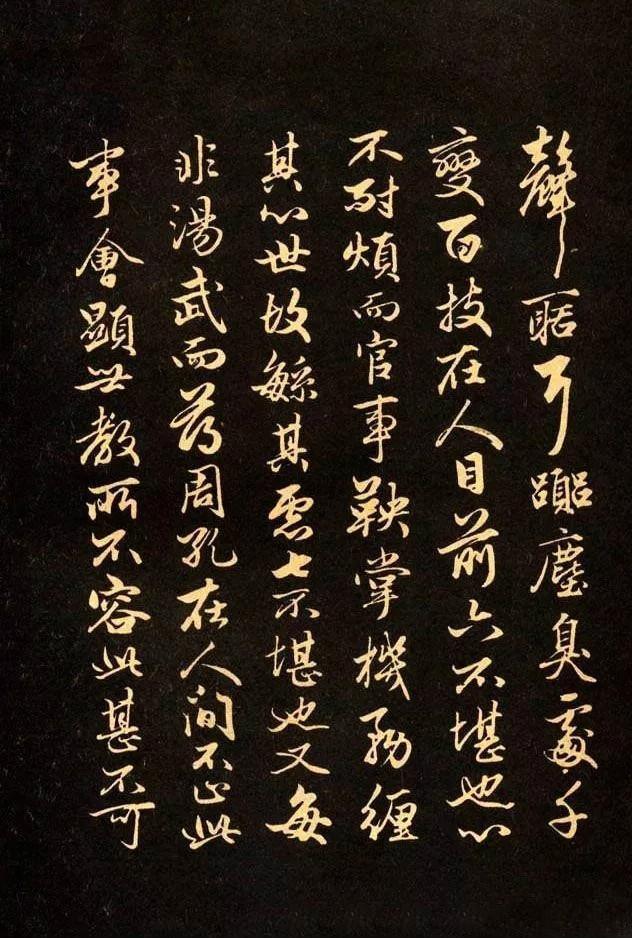 聲聒耳囂塵臭處千
變百技在人目前六不堪也心
不耐煩而官事鞅掌機務纏
其心世故繇其慮七不堪也又每
非湯武而薄周孔在人間不止此
事會顯世教所不容此甚不可